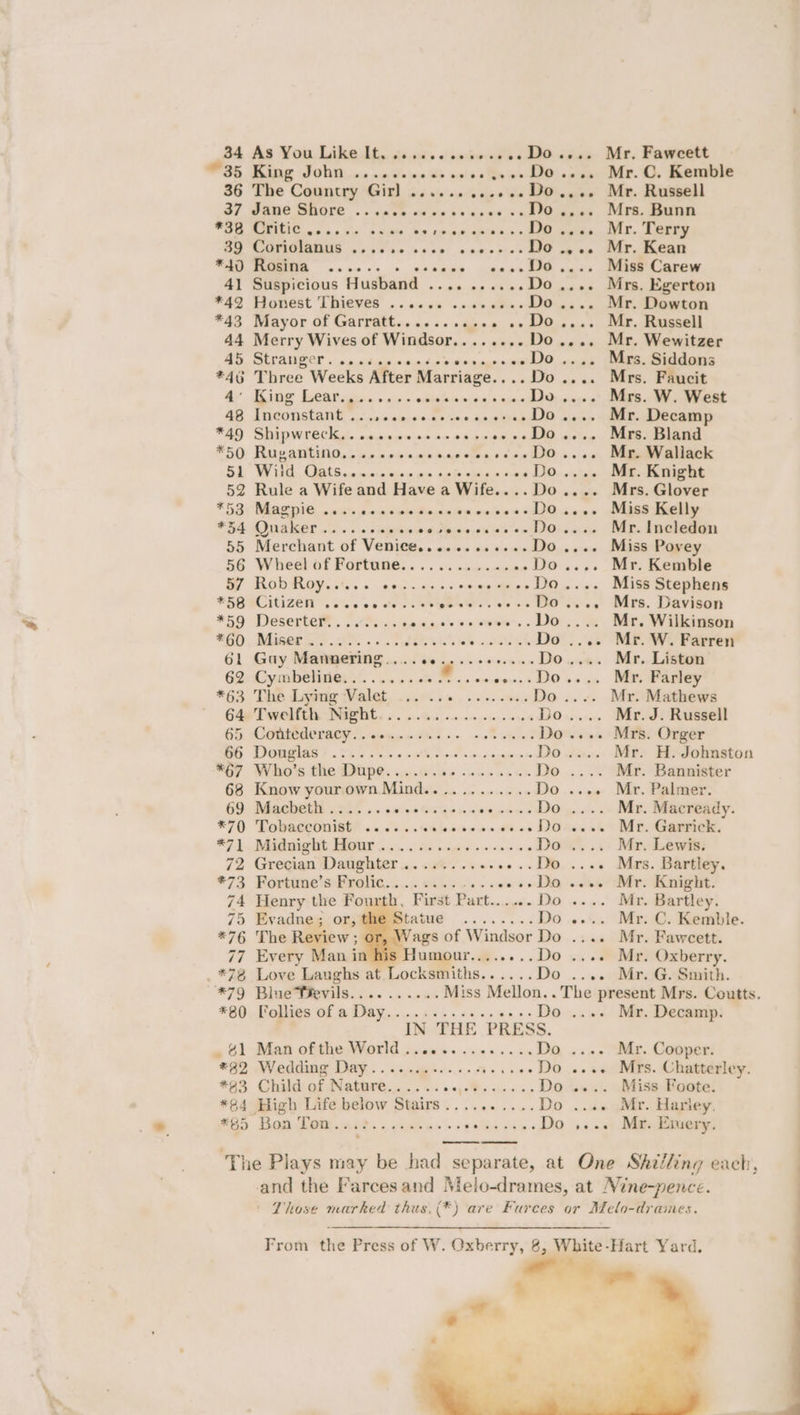 34 As You Like It. .............. Do .... Mr. Fawcett
*35 King John .................. Do .... Mr. C. Kemble
36 The Country Girl ............ Do .... Mr. Russell
37 Jane Shore .................. Do .... Mrs. Bunn
*38 Critic ...................... Do .... Mr. Terry
39 Coriolanus .................. Do .... Mr. Kean
*40 Rosina ..................... Do .... Miss Carew
41 Suspicious Husband .......... Do .... Mrs. Egerton
*42 Honest Thieves .............. Do .... Mr. Dowton
*43 Mayor of Garratt............. Do .... Mr. Russell
44 Merry Wives of Windsor........ Do .... Mr. Wewitzer
45 Stranger..................... Do .... Mrs. Siddons
*46 Three Weeks After Marriage.... Do .... Mrs. Faucit
4' King Lear.................... Do .... Mrs. W. West
48 Inconstant .................. Do .... Mr. Decamp
*49 Shipwreck................... Do .... Mrs. Bland
*50 Rugantino................... Do .... Mr. Wallack
51 Wild Oats.................... Do .... Mr. Knight
52 Rule a Wife and Have a Wife.... Do .... Mrs. Glover
*53 Magpie ..................... Do .... Miss Kelly
*54 Quaker ..................... Do .... Mr. Incledon
55 Merchant of Venice............ Do .... Miss Povey
56 Wheel of Fortune.............. Do .... Mr. Kemble
57 Rob Roy...................... Do .... Miss Stephens
*58 Citizen .................... Do .... Mrs. Davison
*59 Deserter.................... Do .... Mr. Wilkinson
*60 Miser ...................... Do .... Mr. W. Farren
61 Guy Mannering................ Do .... Mr. Liston
62 Cymbeline.................... Do .... Mr. Farley
*63 The Lying Valet ............. Do .... Mr. Mathews
64 Twelfth Night................ Do .... Mr. J. Russell
65 Confederacy.................. Do .... Mrs. Orger
66 Douglas ..................... Do .... Mr. H. Johnston
*67 Who's the Dupe.............. Do .... Mr. Bannister
68 Know your own Mind............ Do .... Mr. Palmer.
69 Macbeth ..................... Do .... Mr. Macready.
*70 Tobacconist ................ Do .... Mr. Garrick.
*71 Midnight Hour ............... Do .... Mr. Lewis.
72 Grecian Daughter ............. Do .... Mrs. Bartley.
*73 Fortune's Frolic............. Do .... Mr. Knight.
74 Henry the Fourth, First Part...... Do .... Mr. Bartley.
75 Evadne; or, the Statue ........ Do .... Mr. C. Kemble.
*76 The Review; or, Wags of Windsor Do .... Mr. Fawcett.
77 Every Man in his Humour........ Do .... Mr. Oxberry.
*78 Love Laughs at Locksmiths...... Do .... Mr. G. Smith.
*79 Blue Devils........... Miss Mellon..The present Mrs. Coutts.
*80 Follies of a Day............. Do .... Mr. Decamp.
IN THE PRESS.
81 Man of the World ............. Do .... Mr. Cooper.
*82 Wedding Day ................. Do .... Mrs. Chatterley.
*83 Child of Nature.............. Do .... Miss Foote.
*84 High Life below Stairs .......... Do .... Mr. Harley.
*85 Bon Ton..................... Do .... Mr. Emery.
The Plays may be had separate, at One Shilling each,
and the Farces and Melo-drames, at Nine-pence.
Those marked thus, (*) are Farces or Melo-drames.
From the Press of W. Oxberry, 8, White-Hart Yard.